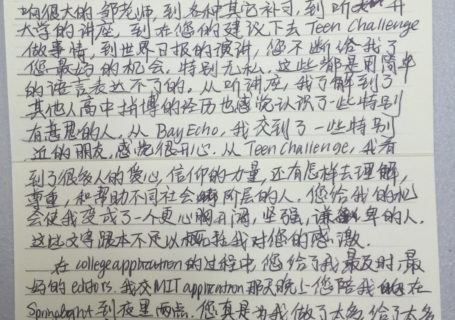 响很大的邹老师，到各种其它补习，到听 开
大学的讲座，到在您的建议下去 Teen Challenge
做事情，到世界日报的演讲，您不断给我了
您最好的机会，特别无私，这些都是用简单
的语言表达不了的。从听讲座，我了解到了
其他人高中拼搏的经历也感觉认识了一些特别
有智慧的人。从 BayEcho，我交到了一些特别
近的朋友，感觉很开心。从 Teen Challenge，我看
到了很多人的爱心，信仰的力量，还有怎样去理解，
尊重，和帮助不同社会阶层的人。您给我的机
会使我变成了一个更心胸开阔，坚强，谦卑的人。
这些文字跟本不足以概括我对您的感激。
在 college application 的过程中，您给了我最及时，最
好的 editors。我交 MIT application 那天晚上，您陪我在
Springlight 到夜里两点。您真是为我做了太多，给了太多